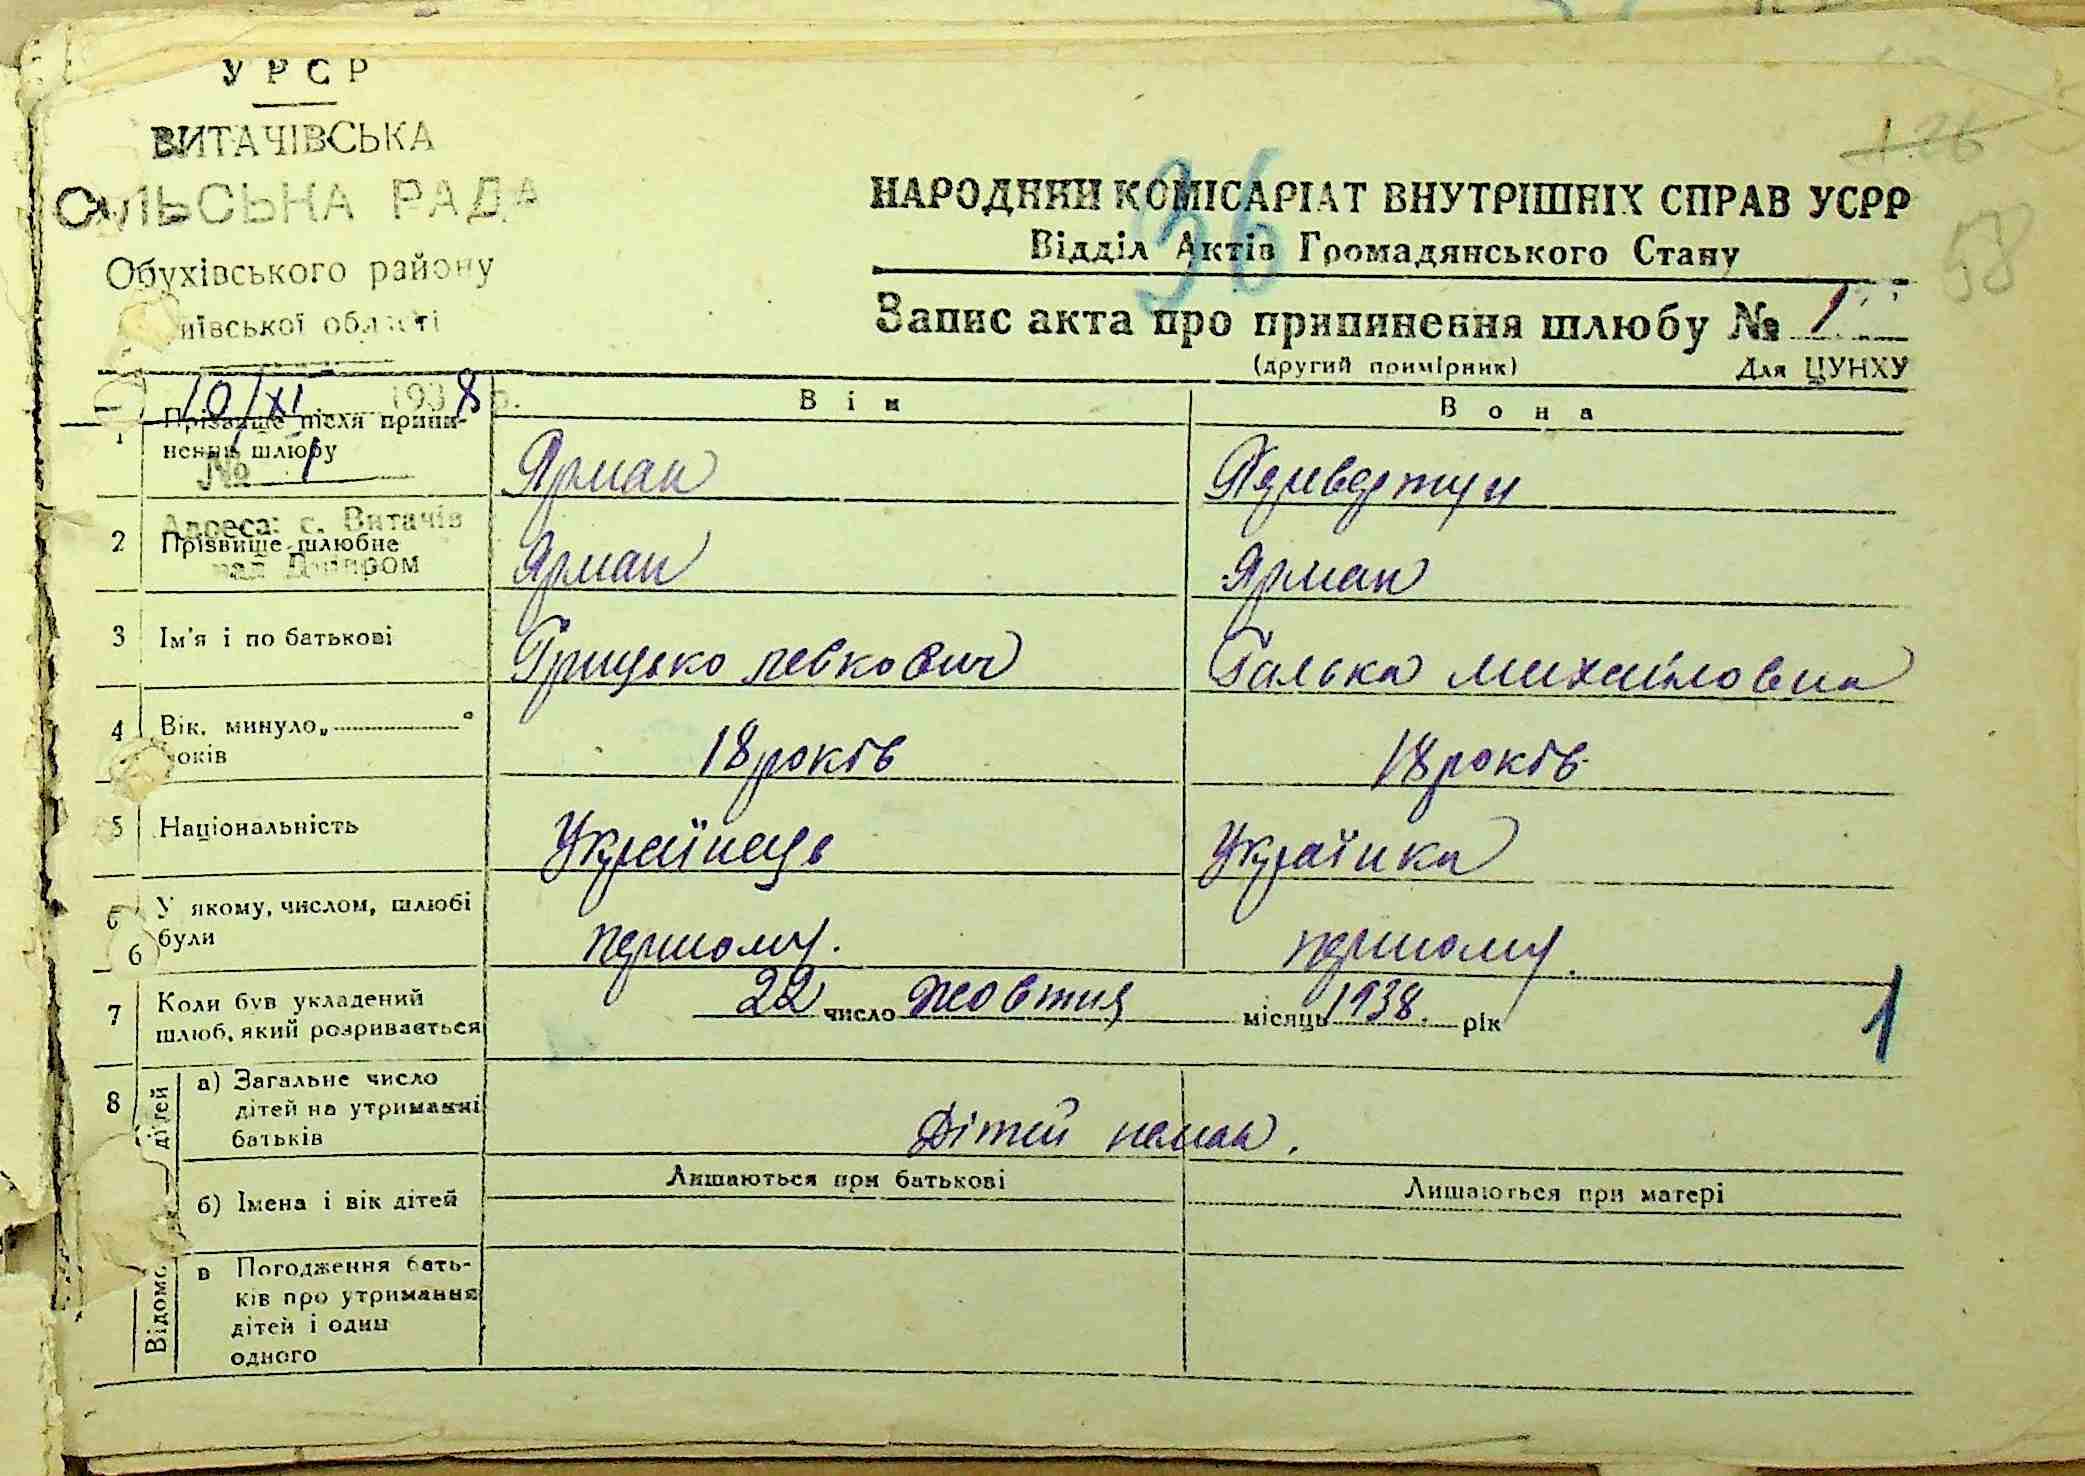 УРСР
ВИТАЧІВСЬКА
СІЛЬСЬКА РАДА
Обухівського району
Київської області
10/XI 1938 р.
№ 1
Адреса: с. Витачів
над Дніпром
1.26
36
58
НАРОДНИЙ КОМІСАРІАТ ВНУТРІШНІХ СПРАВ УСРР
Відділ Актів Громадянського Стану
Запис акта про припинення шлюбу № 1
(другий примірник) Для ЦУНХУ
Він Вона
1 Прізвище після припи-
нення шлюбу Ярмак Перевертун
2 Прізвище шлюбне Ярмак Ярмак
3 Ім'я і по батькові Грицько Левкович Галька Михайловна
4 Вік. минуло „
років 18 років 18 років
5 Національність Українець Українка
6 У якому, числом, шлюбі
були першому. першому.
6
7 Коли був укладений
шлюб, який розривається 22 число жовтня місяць 1938. рік
1
8 дітей
а) Загальне число
дітей на утриманні
батьків Дітей немає.
б) Імена і вік дітей Лишаються при батькові Лишаються при матері
в Погодження бать-
ків про утримання
дітей і один
одного